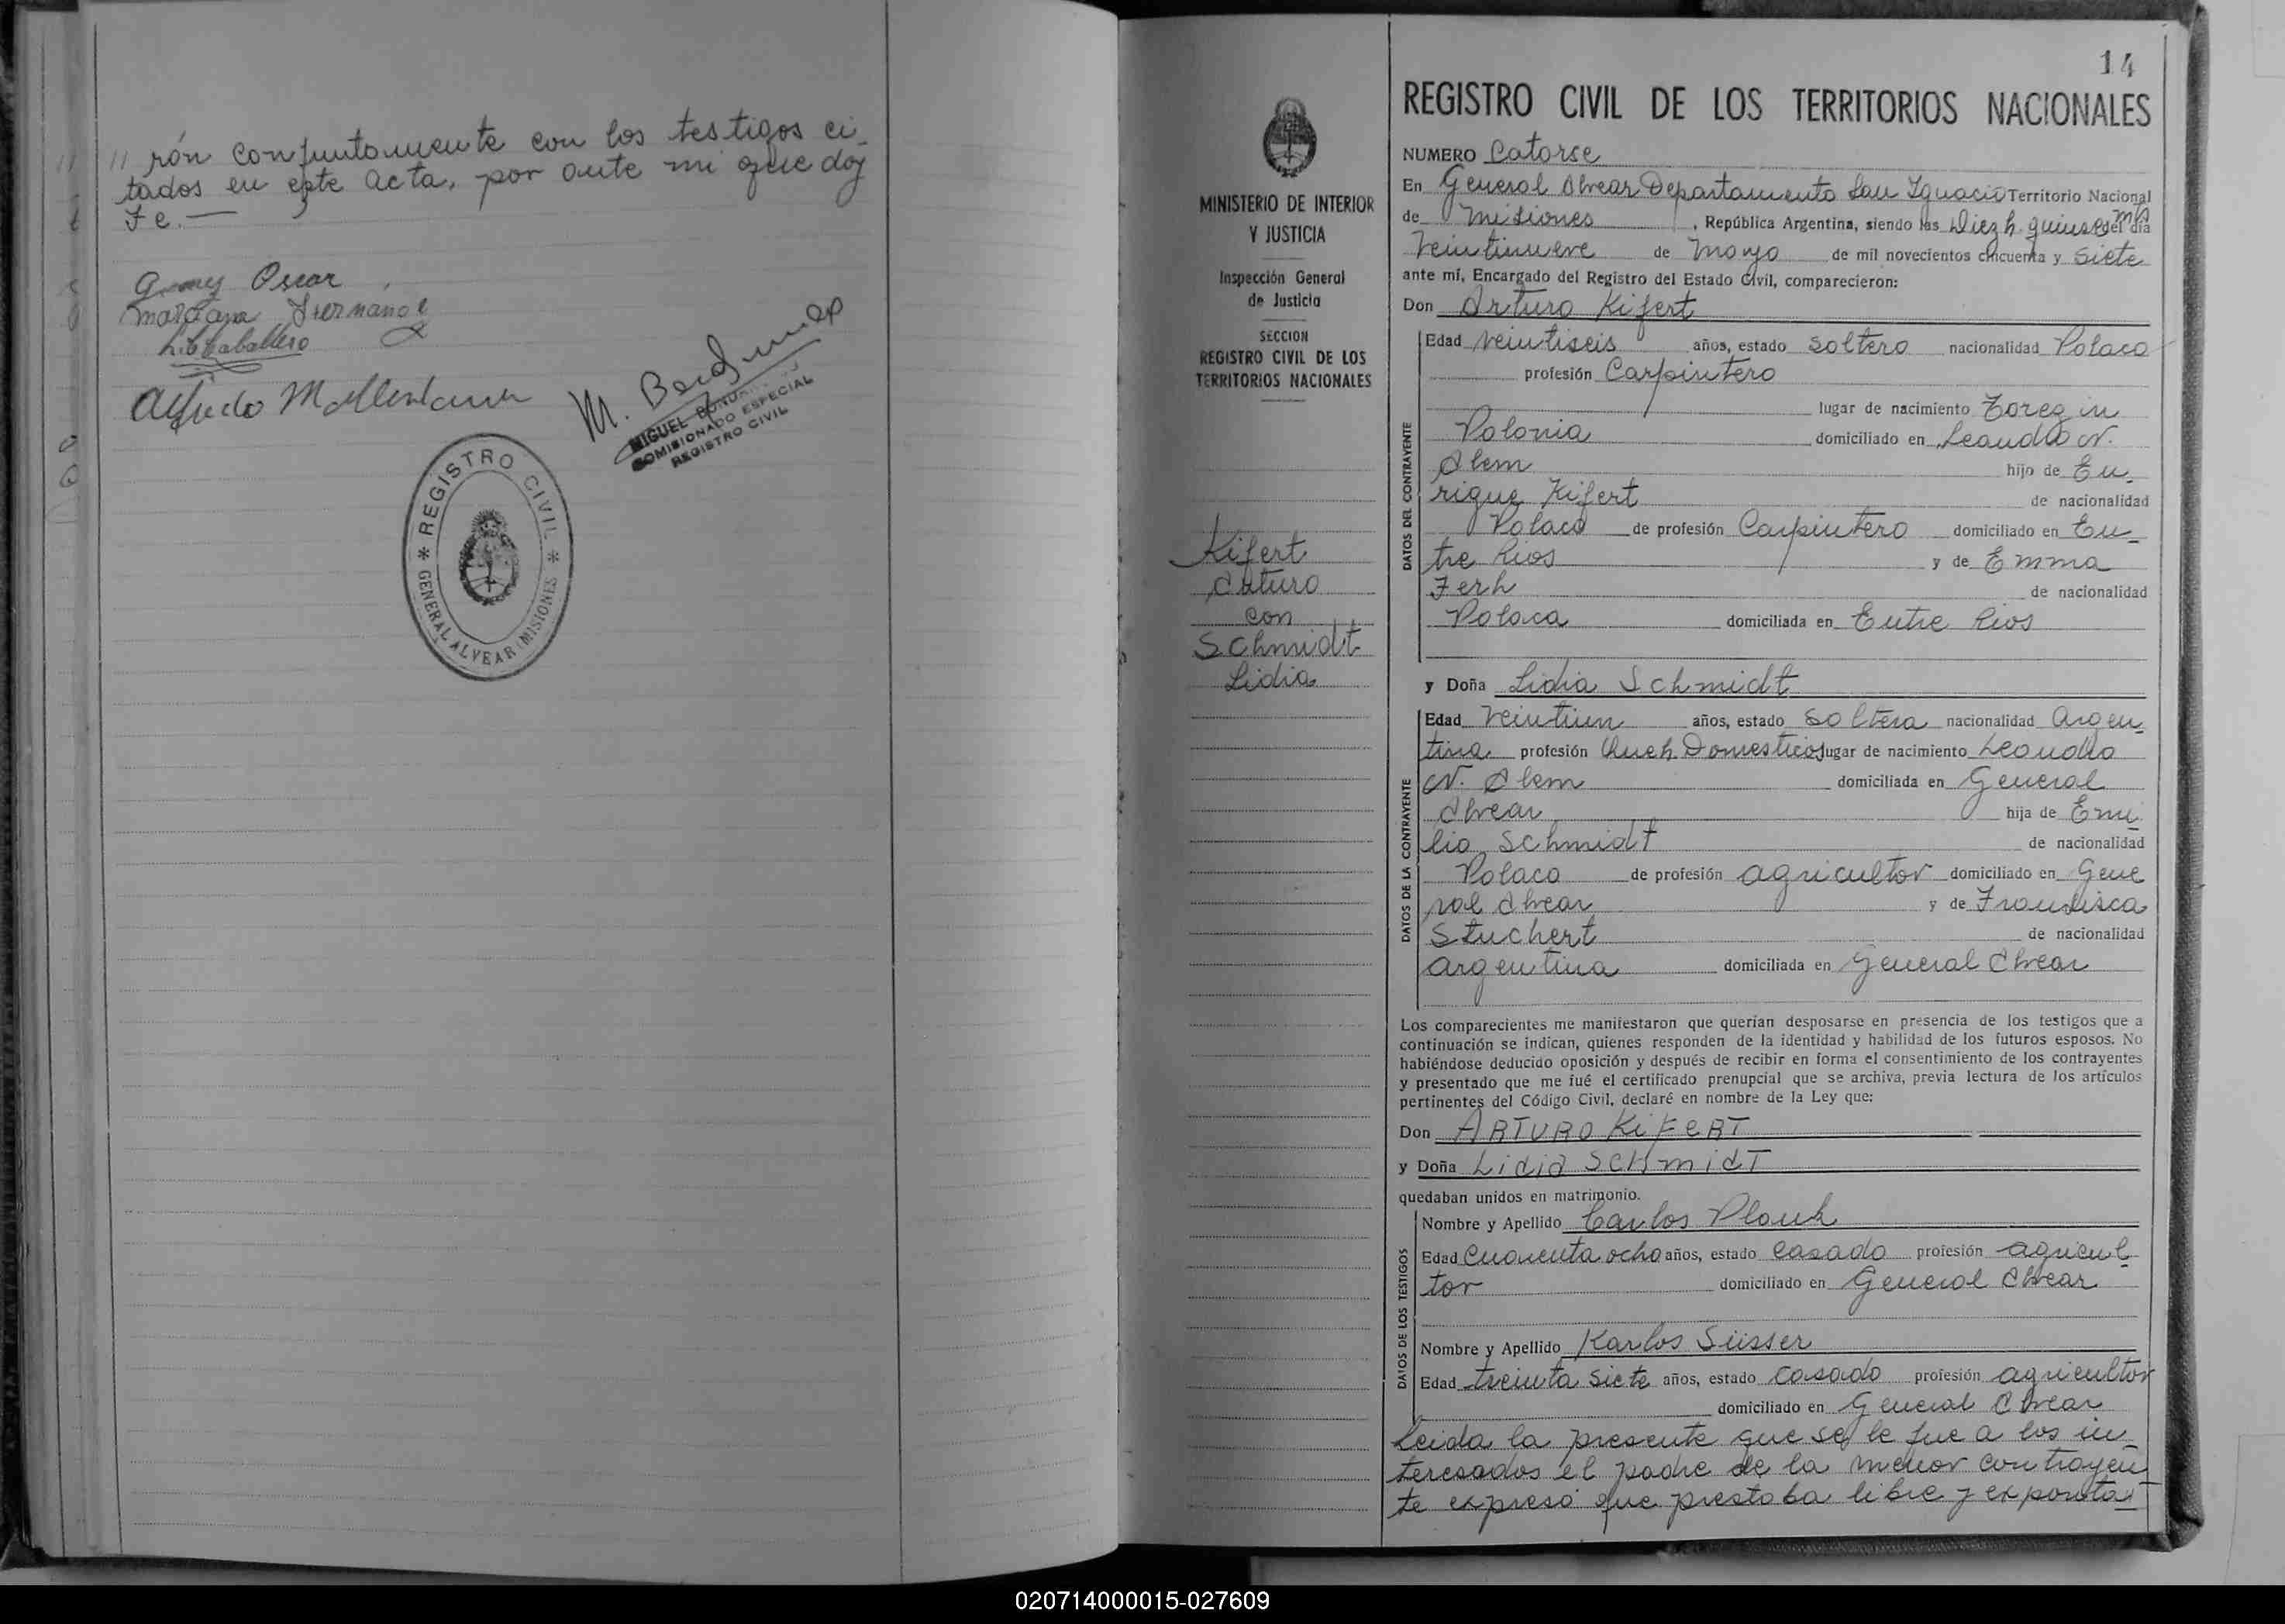 // rón conjuntamente con los testigos ci_
tados en este acta, por ante mi que doy
Fe.—
Gomez Oscar
L. C. Caballero
Alfredo
M.
MIGUEL
COMISIONADO ESPECIAL
REGISTRO CIVIL
* REGISTRO CIVIL *
GENERAL ALVEAR (MISIONES)
MINISTERIO DE INTERIOR
Y JUSTICIA
Inspección General
de Justicia
SECCION
REGISTRO CIVIL DE LOS
TERRITORIOS NACIONALES
Kifert
Arturo
con
Schmidt
Lidia
14
REGISTRO CIVIL DE LOS TERRITORIOS NACIONALES
NUMERO Catorse
En General Alvear Departamento San Ignacio Territorio Nacional
de Misiones, República Argentina, siendo las Diez h. quinse ms del día
Veintinueve de Mayo de mil novecientos cincuenta y siete
ante mí, Encargado del Registro del Estado Civil, comparecieron:
Don Arturo Kifert
DATOS DEL CONTRAYENTE
Edad Veintiseis años, estado soltero nacionalidad Polaco
profesión Carpintero
lugar de nacimiento Toregin
Polonia domiciliado en Leandro N.
Alem hijo de En_
rique Kifert de nacionalidad
Polaco de profesión Carpintero domiciliado en En_
tre Rios y de Emma
Ferh de nacionalidad
Polaca domiciliada en Entre Rios
y Doña Lidia Schmidt
DATOS DE LA CONTRAYENTE
Edad Veintiun años, estado soltera nacionalidad Argen_
tina profesión Queh. Domesticos lugar de nacimiento Leandro
N. Alem domiciliada en General
Alvear hija de Emi_
lio Schmidt de nacionalidad
Polaco de profesión agricultor domiciliado en Gene
ral Alvear y de Francisca
Stuchert de nacionalidad
argentina domiciliada en General Alvear
Los comparecientes me manifestaron que querían desposarse en presencia de los testigos que a
continuación se indican, quienes responden de la identidad y habilidad de los futuros esposos. No
habiéndose deducido oposición y después de recibir en forma el consentimiento de los contrayentes
y presentado que me fué el certificado prenupcial que se archiva, previa lectura de los artículos
pertinentes del Código Civil, declaré en nombre de la Ley que:
Don ARTURO KiFeRT
y Doña Lidia SCHmidT
quedaban unidos en matrimonio.
DATOS DE LOS TESTIGOS
Nombre y Apellido Carlos Plauk
Edad Cuarenta ocho años, estado Casado profesión agricul_
tor domiciliado en General Alvear
Nombre y Apellido Karlos Süsser
Edad treinta siete años, estado Casado profesión agricultor
domiciliado en General Alvear
Leida la presente que se le fue a los in_
teresados el padre de la menor contrayen_
te expresó que prestaba libre y exponta_
020714000015-027609